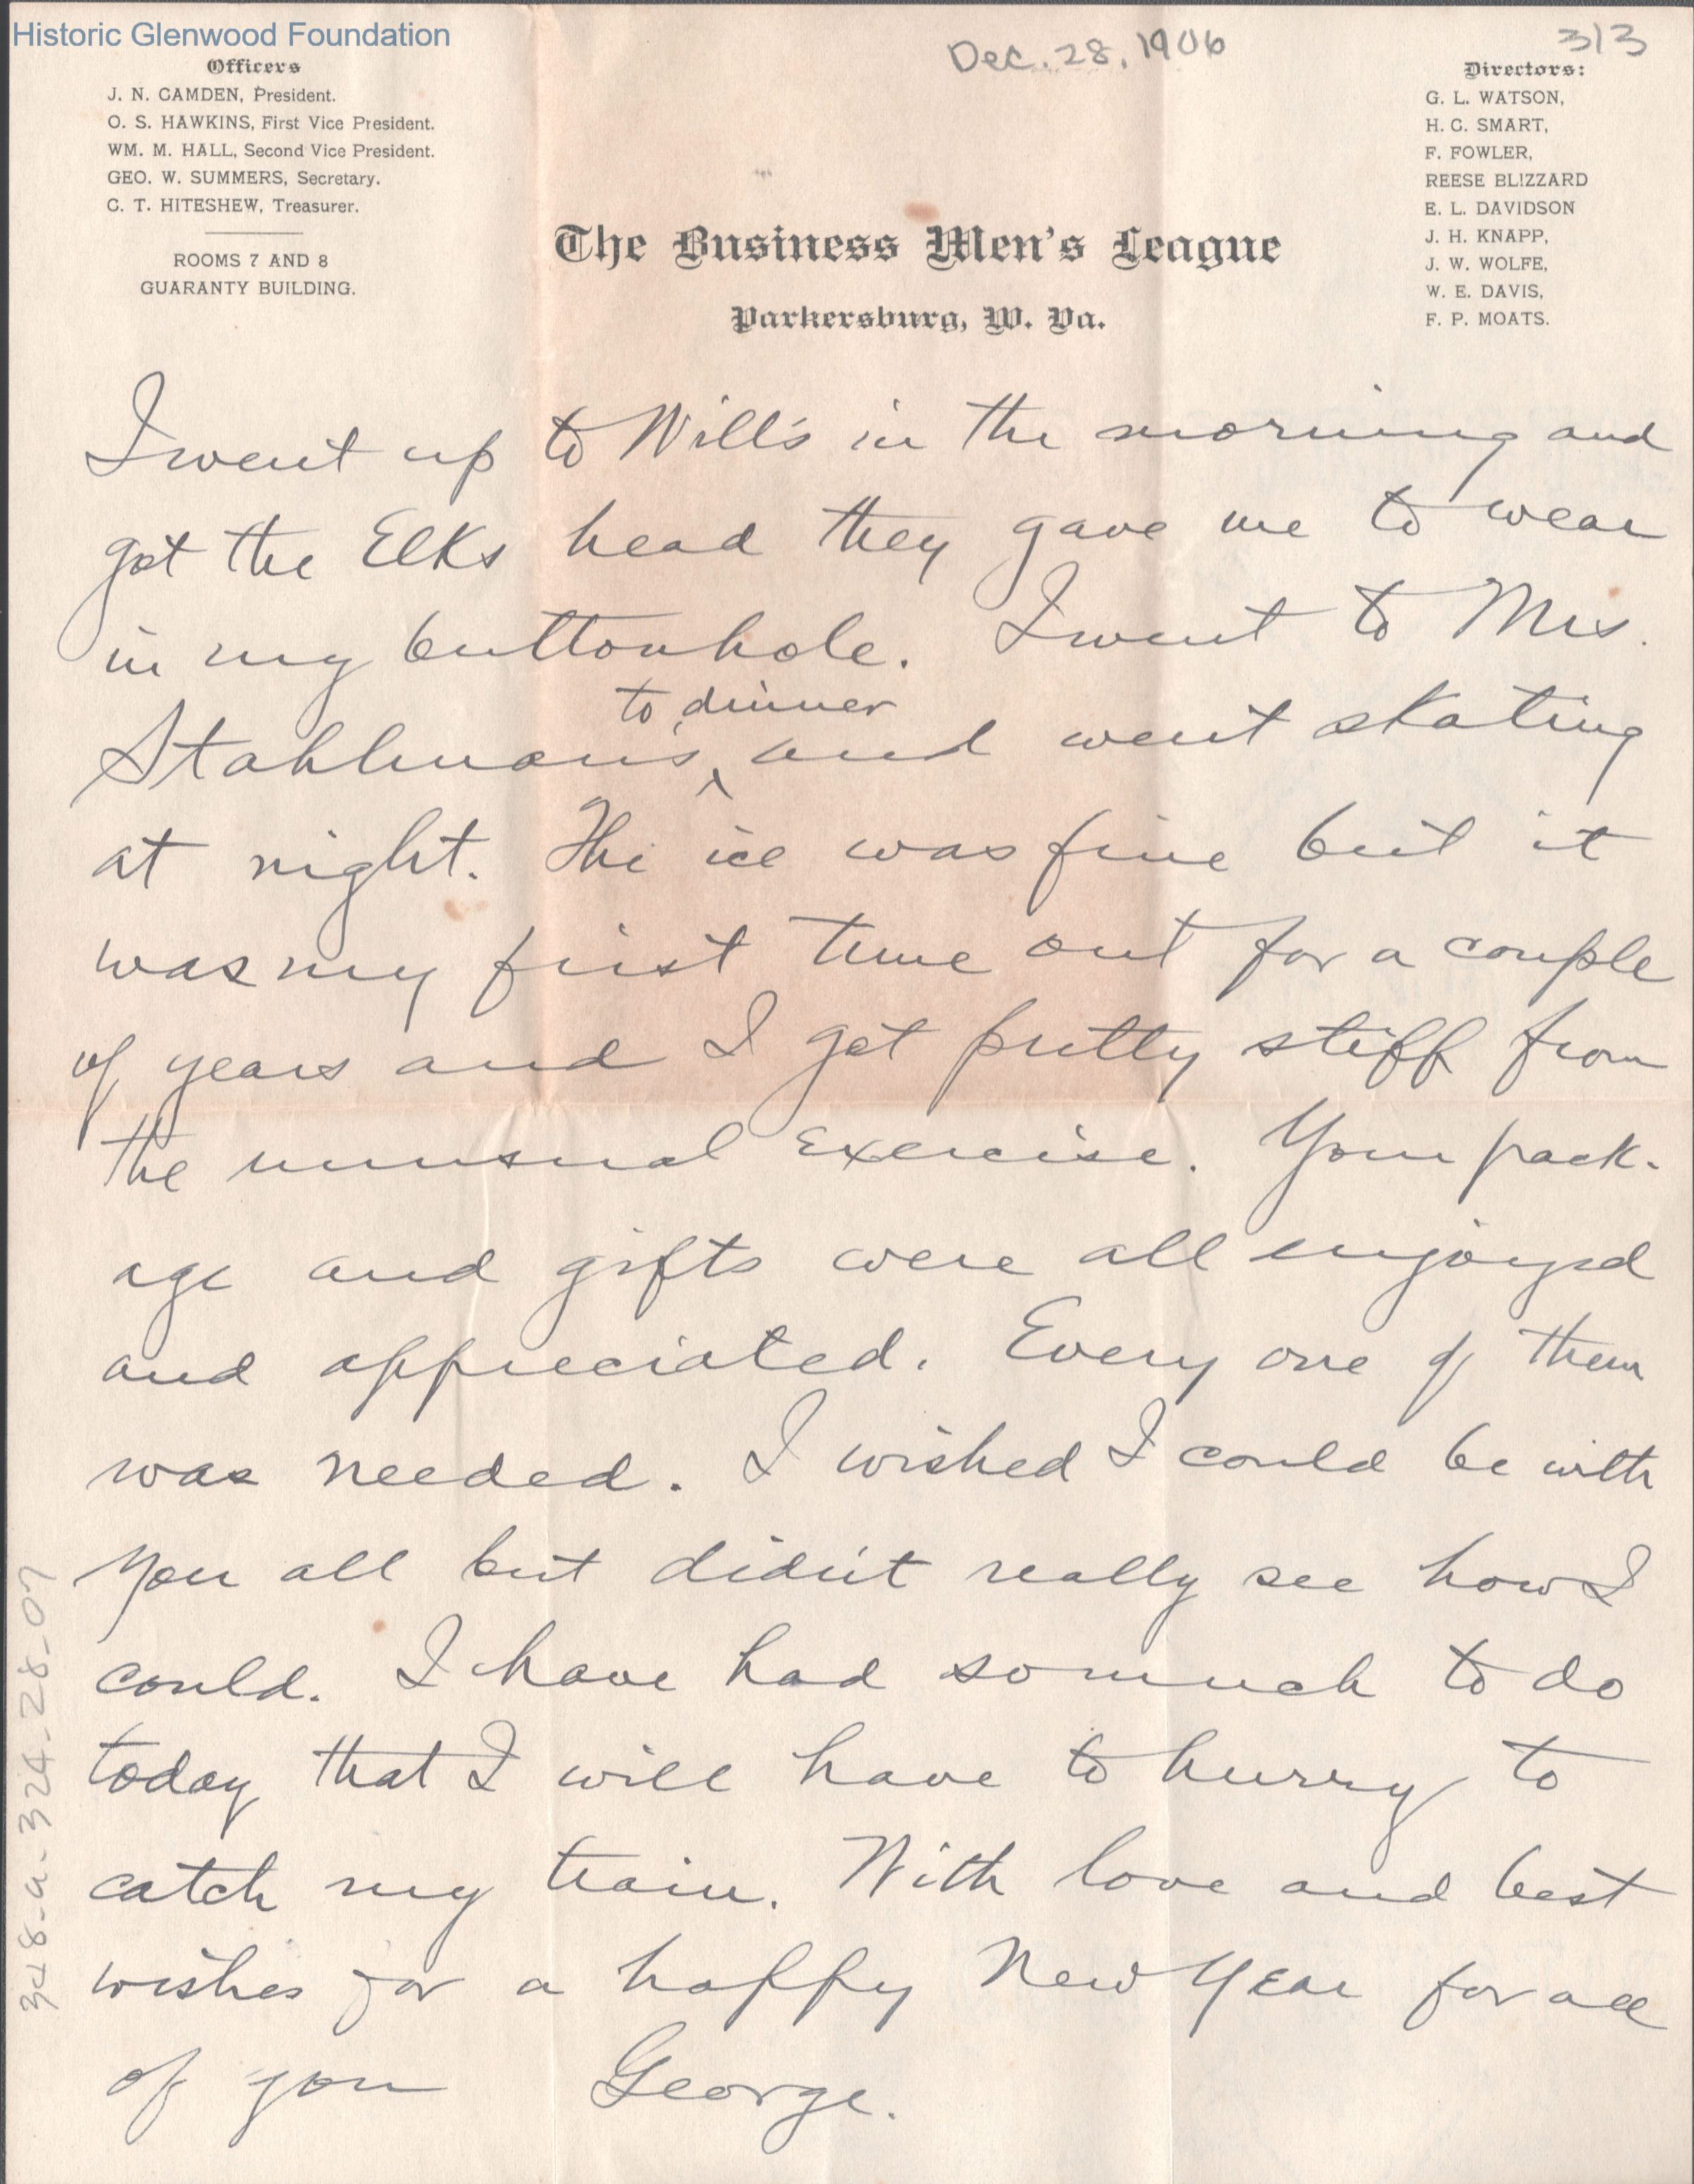 Historic Glenwood Foundation
Dec. 28, 1906
313
Officers
J. N. CAMDEN, President.
O. S. HAWKINS, First Vice President.
WM. M. HALL, Second Vice President.
GEO. W. SUMMERS, Secretary.
C. T. HITESHEW, Treasurer.
ROOMS 7 AND 8
GUARANTY BUILDING.
The Business Men's League
Parkersburg, W. Va.
Directors:
G. L. WATSON,
H. C. SMART,
F. FOWLER,
REESE BLIZZARD
E. L. DAVIDSON
J. H. KNAPP,
J. W. WOLFE,
W. E. DAVIS,
F. P. MOATS.
I went up to Will's in the morning and
got the Elks head they gave me to wear
in my buttonhole. I went to Mrs.
to dinner
Stahlman's ‸ and went skating
at night. The ice was fine but it
was my first time out for a couple
of years and I got pretty stiff from
the unusual exercise. Your pack-
age and gifts were all enjoyed
and appreciated. Every one of them
was needed. I wished I could be with
you all but didn't really see how I
could. I have had so much to do
today that I will have to hurry to
catch my train. With love and best
wishes for a happy New Year for all
of you George.
348-a-324-28-07